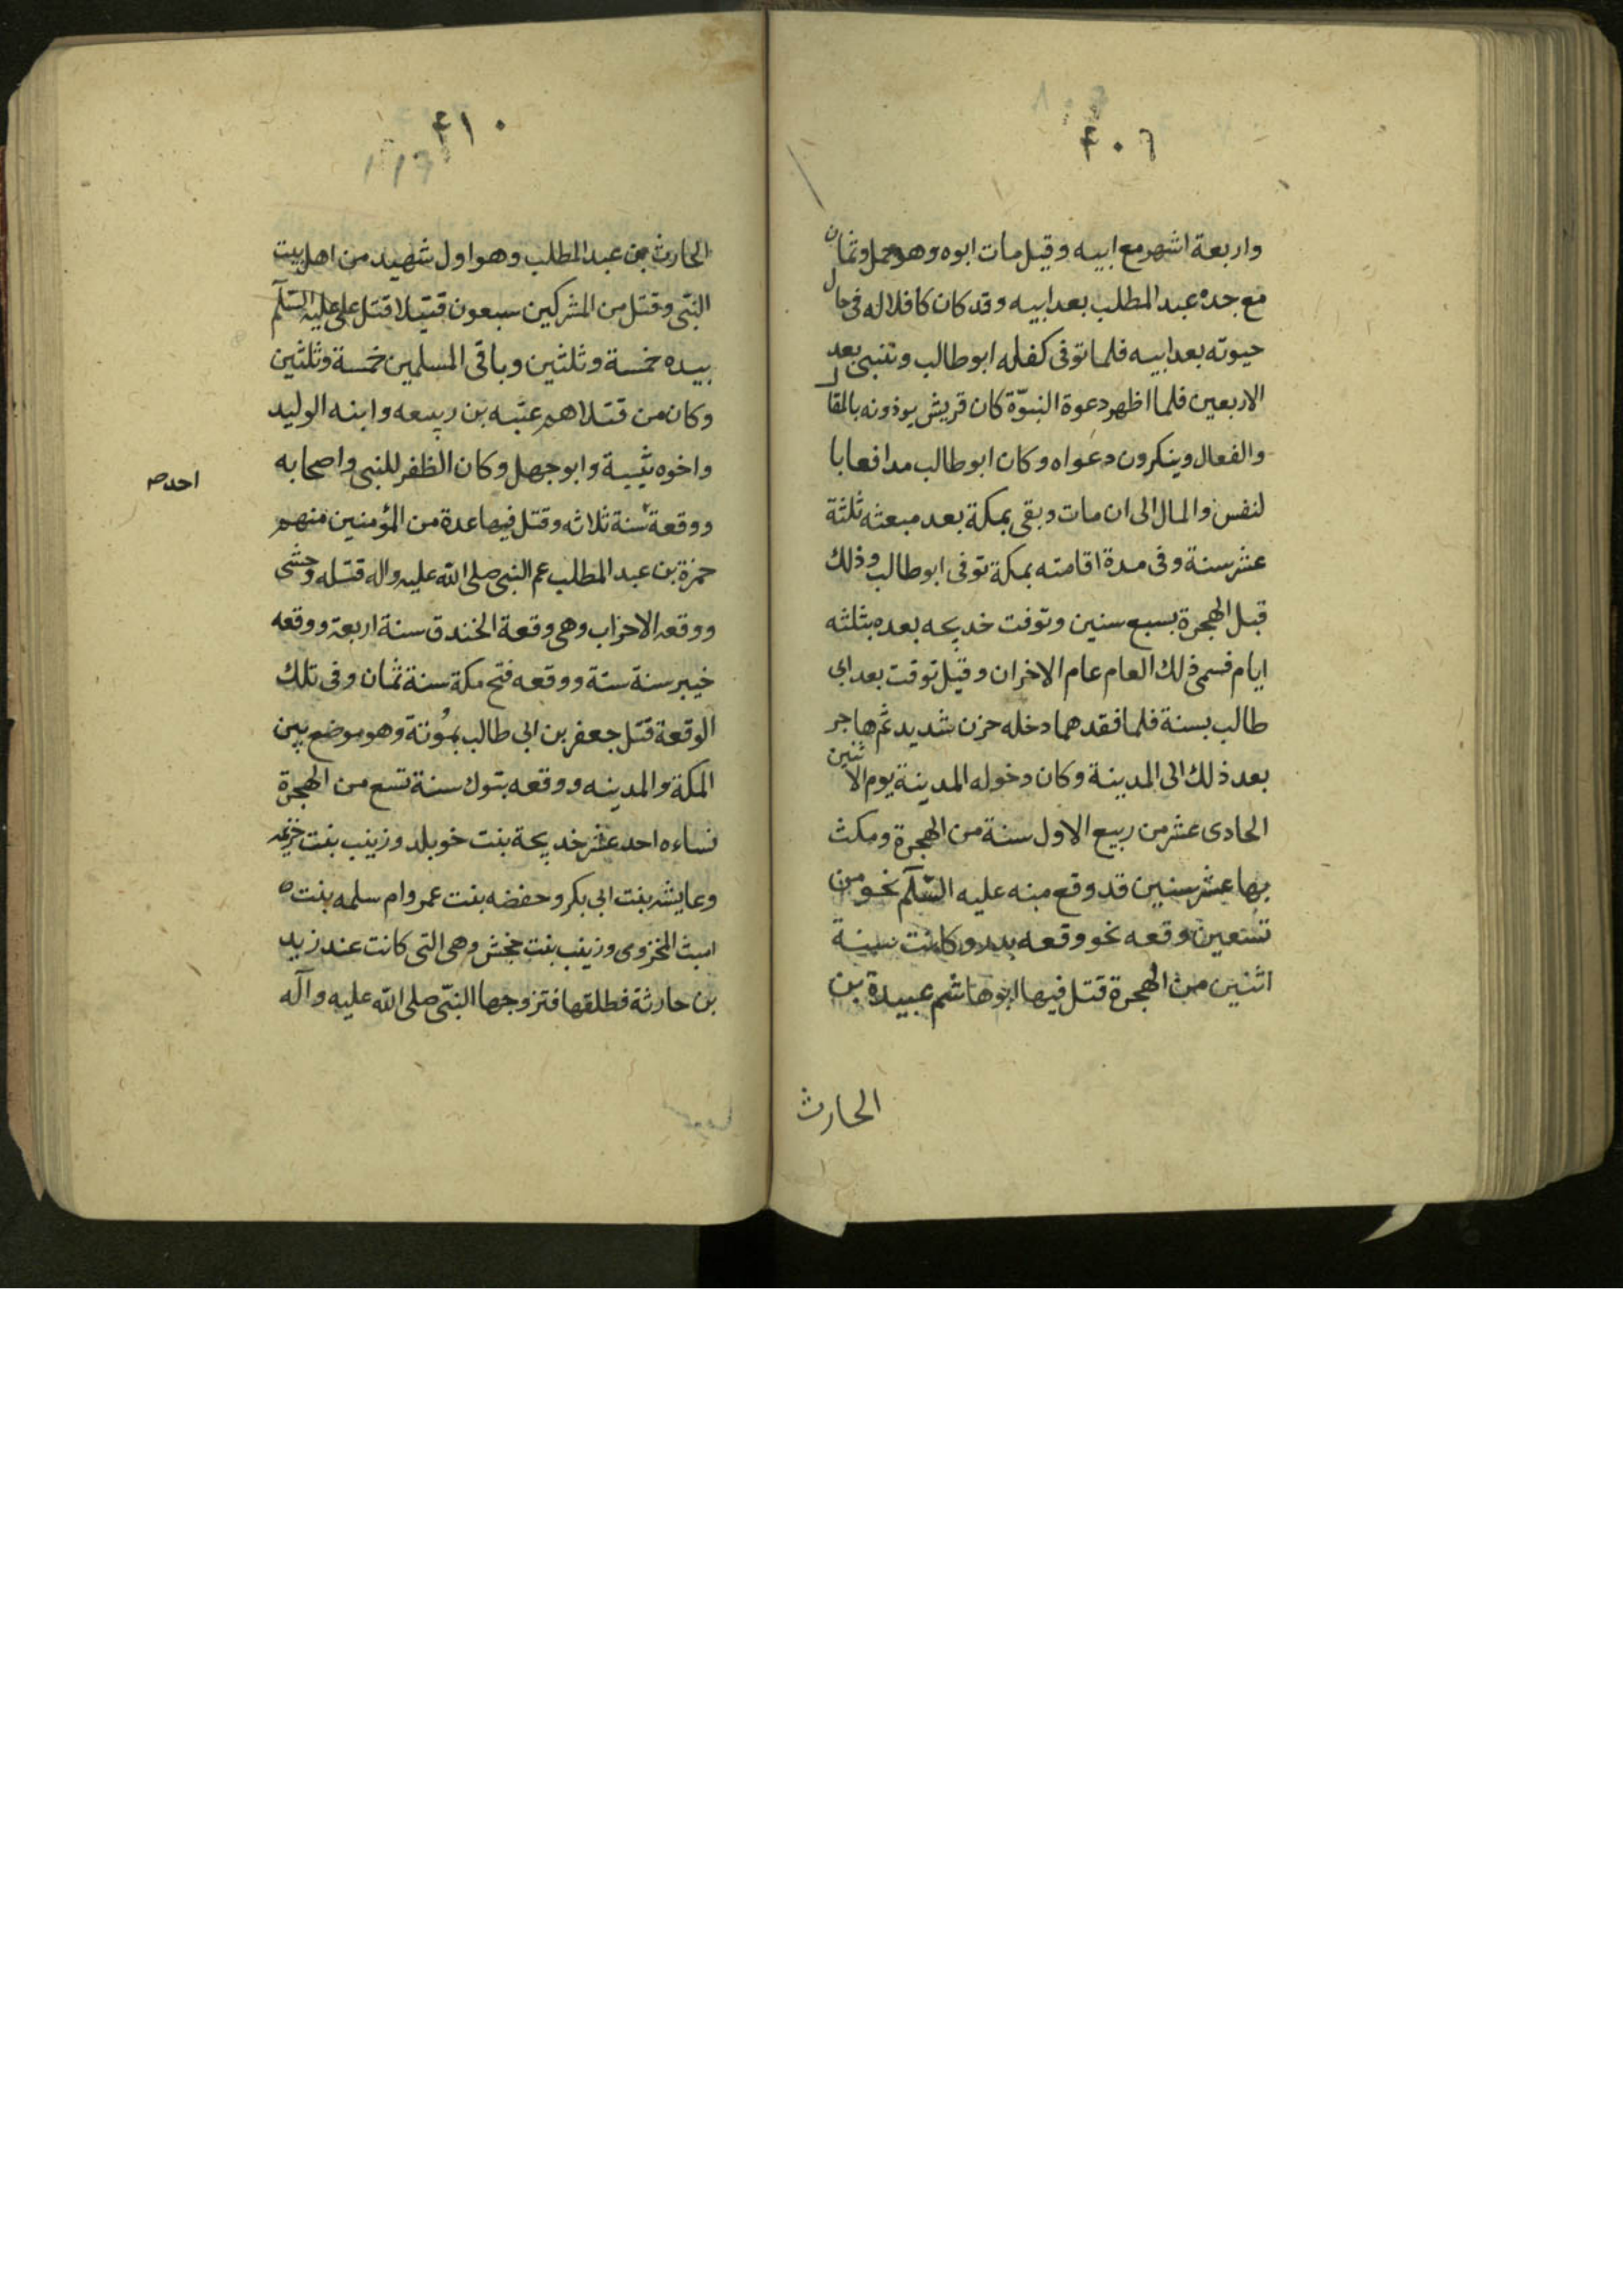 ۴۰۶
واربعة اشهر مع ابيه وقيل مات ابوه وهو حمل وثمان
مع جده عبد المطلب بعد ابيه وقد كان كافلا له فى حال
حيوته بعد ابيه فلما توفى كفله ابو طالب وتنبى بعد
الاربعين فلما اظهر دعوة النبوّة كان قريش يوذونه بالمقال
والفعال وينكرون دعواه وكان ابو طالب مدافعا با
لنفس والمال الى ان مات وبقى بمكة بعد مبعثه ثلثة
عشر سنة وفى مدة اقامته بمكة توفى ابو طالب وذلك
قبل الهجرة بسبع سنين وتوفت خديجه بعده بثلثه
ايام فسمى ذلك العام عام الاخران وقيل توقت بعد ابى
طالب بسنة فلما فقدهما دخله حزن شديد ثم هاجر
بعد ذلك الى المدينة وكان دخوله المدينة يوم الاثنين
الحادى عشر من ربيع الاول سنة من الهجرة ومكث
بها عشر سنين قد وقع منه عليه السّلم نحو من
تسعين وقعه نحو وقعه بدر وكانت سنة
اثنين من الهجرة قتل فيها ابو هاشم عبيدة بن
الحارث
۴۱۰
الحارث بن عبد المطلب وهو اول شهيد من اهل بيت
النبّى وقتل من المشركين سبعون قتيلا قتل على عليه السّلم
بيده خمسة وثلثين وباقى المسلمين خمسة وثلثين
وكان من قتلاهم عتبه بن ربيعه وابنه الوليد
واخوه شيبة وابو جهل وكان الظفر للنبى واصحابه
ووقعة سنة ثلاثه وقتل فيها عدة من المؤمنين منهم
احد صـ
حمزة بن عبد المطلب عم النبى صلى الله عليه واله قتله وحشى
ووقعه الاحزاب وهى وقعة الخندق سنة اربعة ووقعه
خيبر سنة ستة ووقعه فتح مكة سنة ثمان وفى تلك
الوقعة قتل جعفر بن ابى طالب بمُوتة وهو موضع بين
المكة والمدينه ووقعه بتوك سنة تسع من الهجرة
نساءه احد عشر خديجة بنت خويلد وزينب بنت خزيمه
وعايشه بنت ابى بكر وحفضه بنت عمر وام سلمه بنت
امبث المخزوى وزينب بنت جخش وهى التى كانت عند زيد
بن حارثة فطلقها فتزوجها النبّى صلى الله عليه وآله